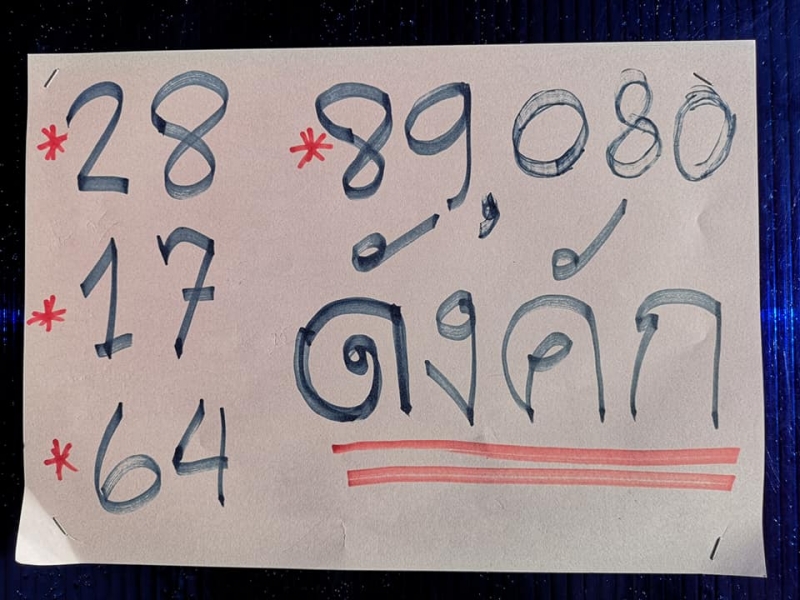 *28 *89,080
*17 ดังคัก
*64